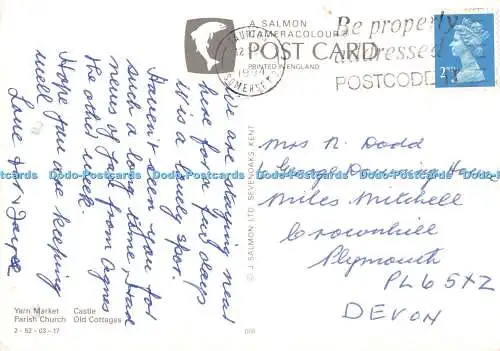 A SALMON
CAMERACOLOUR
POST CARD
PRINTED IN ENGLAND
TAUNTON
12
1994
SOMERSET
Be properly
addressed
POSTCODE
2ND
We are staying near
here for a few days
it is a lovely spot.
Haven't seen you for
such a long time, had
news of you from Agnes
the other week.
Hope you are keeping
well
Love
Mrs N. Dodd
George Downing House
Miles Mitchell
Crownhill
Plymouth
PL6 5XZ
DEVON
© J. SALMON LTD. SEVENOAKS, KENT
Yarn Market Castle
Parish Church Old Cottages
2 - 52 - 03 - 17
Dodo Postcards Dodo Postcards Dodo Postcards Dodo Postcards